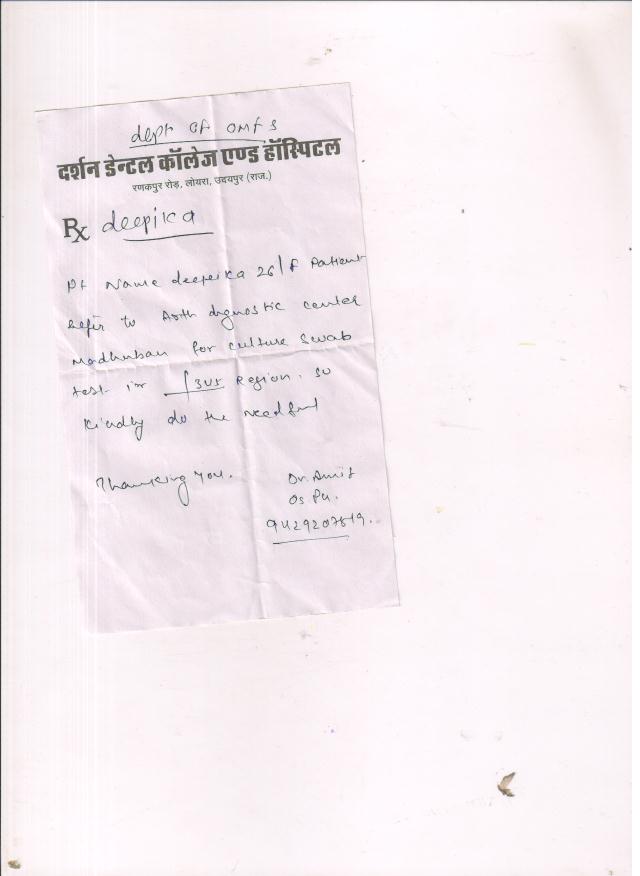 dept of OMFS
दर्शन डेन्टल कॉलेज एण्ड हॉस्पिटल
रणकपुर रोड़, लोयरा, उदयपुर (राज.)
Rx deepika
pt Name deepika 26/F Patient
Refer to Arth dignostic center
Madhuban for culture swab
test in 345 Region. so
kindly do the needful
Thanking you.
Dr. Amit
OS PG.